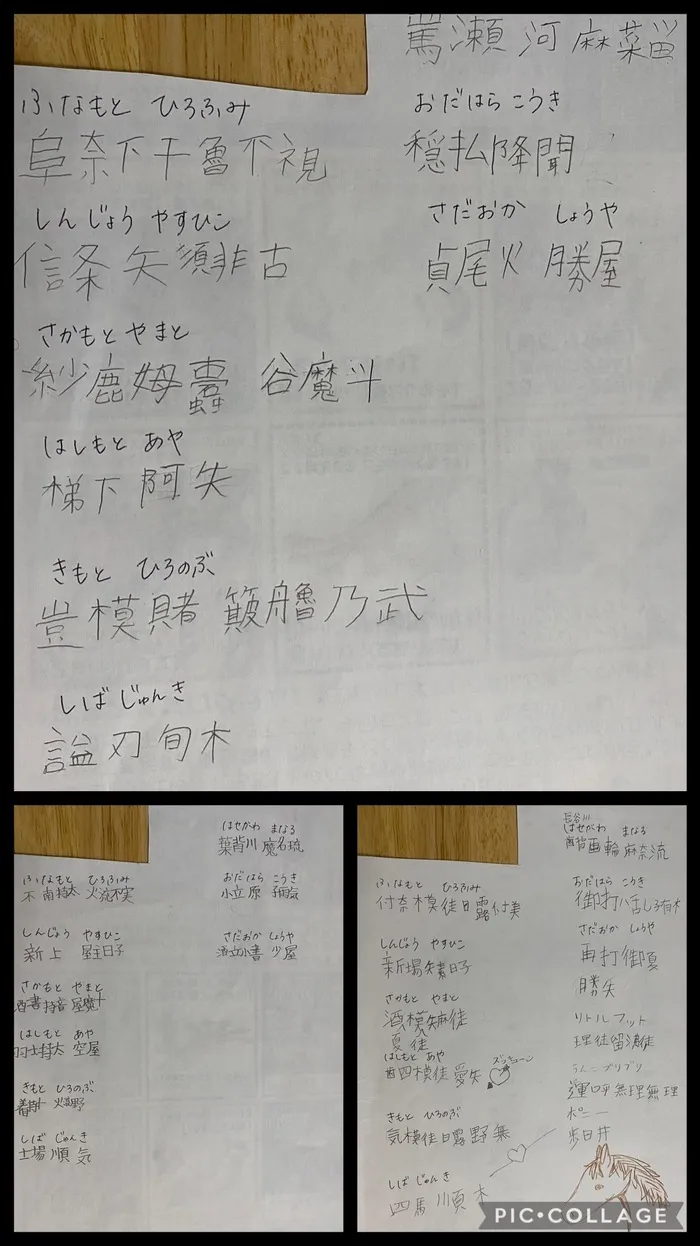 罵瀬河麻菜留
ふなもと ひろふみ
阜奈下干魯不視
しんじょう やすひこ
信条矢須非古
さかもと やまと
紗鹿姆蠹 谷魔斗
はしもと あや
梯下阿失
きもと ひろのぶ
豈模賭 簸艪乃武
しば じゅんき
謚刃旬木
おだはら こうき
穏払降聞
さだおか しょうや
貞尾火 勝屋
ふなもと ひろふみ
しんじょう やすひこ
新上
さかもと やまと
はしもと あや
空屋
きもと ひろのぶ
しば じゅんき
士場順気
はせがわ まなる
葉背川魔名琉
おだはら こうき
小立原
さだおか しょうや
少屋
長谷川
はせがわ まなる
画輪麻奈流
ふなもと ひろふみ
付奈模徒日露付美
しんじょう やすひこ
新場矢素日子
さかもと やまと
酒模矢麻徒
夏徒
はしもと あや
歯四模徒愛矢
ズッキューン
きもと ひろのぶ
気模徒日露野無
しば じゅんき
四馬順木
おだはら こうき
さだおか しょうや
再打御夏
勝矢
リトルフット
理徒留
うんこブリブリ
運呼無理無理
ポニー
歩日井
PIC•COLLAGE